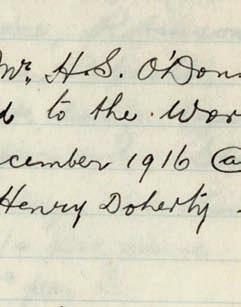 Mr. H.S. O'Donn
d to the Wor
cember 1916 @
Henry Doherty